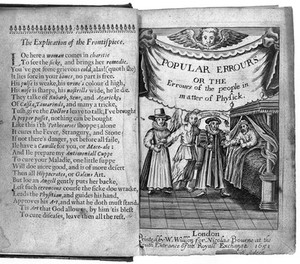 The Explication of the Frontispiece.
Oe here a woman comes in charitie
To see the sicke, and brings her remedie.
You've got some grievous cold, alas! (quoth she)
It lies sore in your bones, no part is free.
His pulse is weake, his urine's colour'd high,
His nose is sharpe, his nostrills wide, he'le die.
They talke of Rubarb, Sene, and Agaricke,
Of Cassia, Tamarinds, and many a tricke,
Tush give the Doctors leave to talke, I've brought
A pepper posset, nothing can be bought
Like this i'th Pothecaries shoppe; alone
It cures the Fever, Strangury, and Stone;
If not there's danger, yet before all faile,
Ile have a Cawdle for you, or Mace-ale:
And Ile prepare my Antimoniall Cuppe
To cure your Maladie, one little suppe
Will doe more good, and is of more desert
Then all Hippocrates, or Galens Art.
But loe an Angell gently puts her backe,
Lest such erroneous course the sicke doe wracke,
Leads the Physitian, and guides his hand,
Approves his Art, and what he doth must stand.
Tis Art that God allowes, by him 'tis blest
To cure diseases, leave then all the rest.
POPULAR ERROURS
OR the
Errours of the people in
matter of Physick.
London
Printed by W. Wilson for Nicolas Bourne at the
South Entrance of the Royall Exchange. 1651